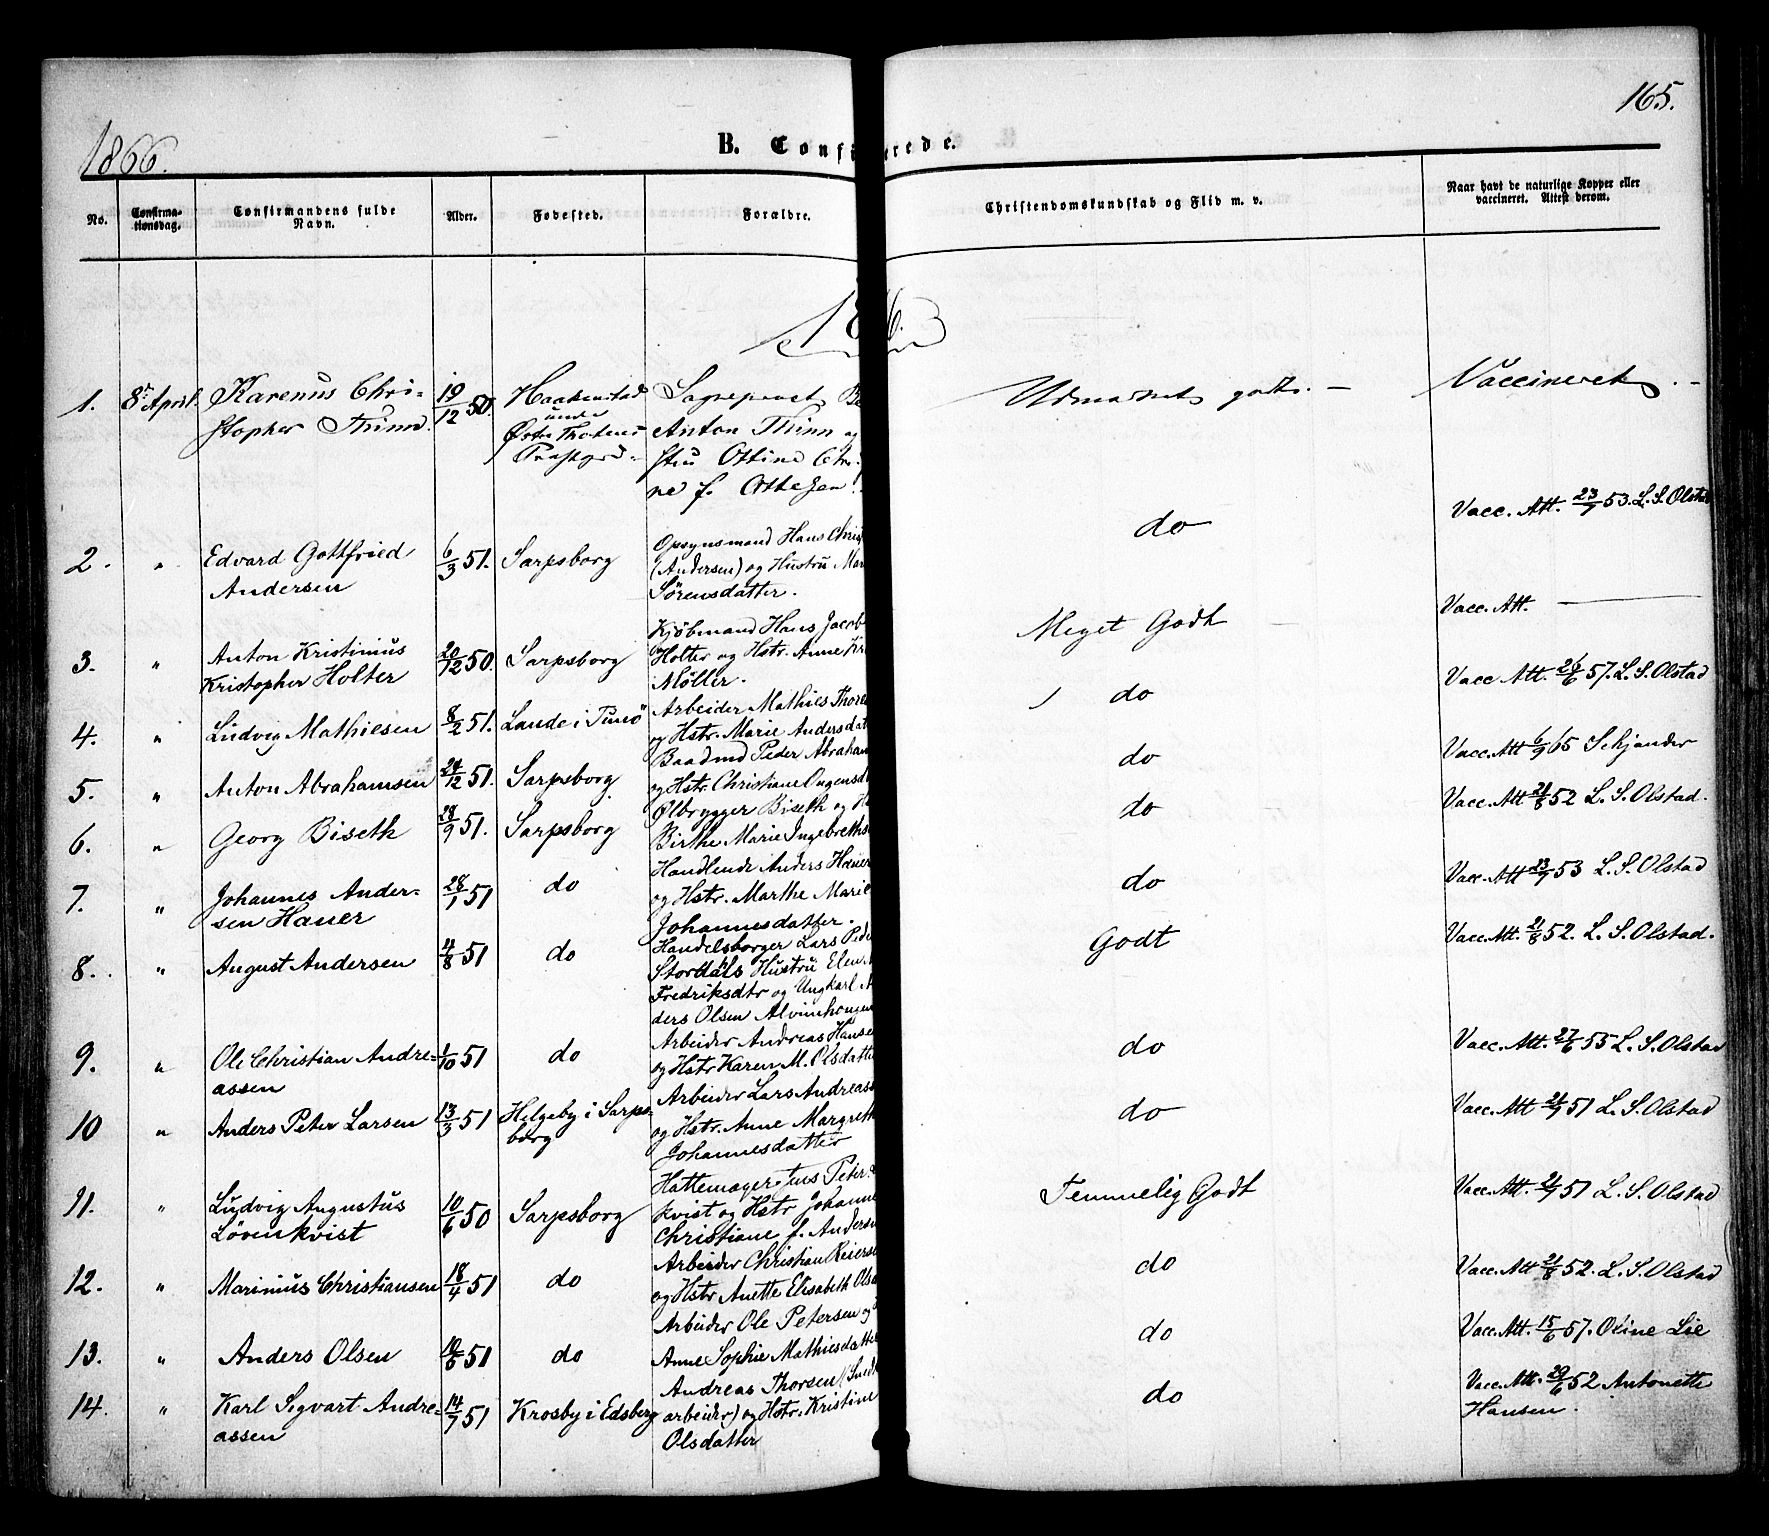 165.
1866.
B. Confirmerede.
No. Confirma-tionsdag. Confirmandens fulde Navn. Alder. Fødested. Forældre. Christendomskundskab og Flid m. v. Naar havt de naturlige Kopper eller vaccineret. Attest derom.
1. 8de April. Karenus Chri-
stopher Thinn. 19/12 50. Haakenstad
under
Østre Thotens
Præstgjd.
Anton Thinn og
Hstru Ottine
f. Ottesen.
Udmærket godt. —
Vaccineret. —
2. " Edvard Gottfried
Andersen 6/3 51. Sarpsborg
Opsynsmand Hans Chri
(Andersen) og Hustru Mar
Sörensdatter.
do
Vacc. Att. 23/7 53. L. S. Olstad
3. " Anton Kristinius
Kristopher Holter 20/12 50. Sarpsborg
Kjöbmand Hans Jacob
Holter og Hstr. Anne Kr
Möller.
Meget Godt
Vacc. Att. —
4. " Ludvig Mathiesen 8/2 51. Lande i Tunö
Arbeider Mathies Thore
og Hstr. Marie Andersdat
do
Vacc. Att. 26/6 57. L. S. Olstad
5. " Anton Abrahamsen 24/12 51. Sarpsborg
Baadmd Peder Abraham
og Hstr. Christiane
do
Vacc. Att 6/9 65 Schjander
6. " Georg Biseth 28/9 51. Sarpsborg
Ölbrygger Biseth og H
Birthe Marie Ingebreths
do
Vacc. Att 21/8 52 L. S. Olstad.
7. " Johannes Ander-
sen Hauer 28/1 51 do
Handlende Anders Hauer
og Hstr. Marthe Marie
Johannesdatter.
do
Vacc. Att 23/7 53 L. S. Olstad
8. " August Andersen 4/8 51 do
Handelsborger Lars Pede
Stordals Hustru Elen
Fredriksdtr og Ungkarl A
ders Olsen Alvimhougen
Godt
Vacc. Att. 21/8 52. L. S. Olstad.
9. " Ole Christian Andre-
assen 1/10 51 do
Arbeider Andreas Hanse
og Hstr Karen M. Olsdatte
do
Vacc. Att. 27/6 55 L. S. Olstad
10 " Anders Peter Larsen 13/3 51 Helgeby i Sarps-
borg
Arbeider Lars Andreass
og Hstr. Anne Margreth
Johannesdatter
do
Vacc. Att 21/9 51 L. S. Olstad
11. " Ludvig Augustus
Lövenkvist 10/6 50 Sarpsborg
Hattemager Jens Peter
kvist og Hstr Johanne
Christiane f. Anderse
Temmelig Godt
Vacc. Att. 21/9 51 L. S. Olstad
12. " Marinius Christiansen 18/4 51 do
Arbeider Christian Reierse
og Hstr Anette Elisabeth Ols
do
Vacc. Att 21/8 52. L. S. Olstad
13. " Anders Olsen 10/5 51 do
Arbeider Ole Petersen og
Anne Sophie Mathiesdatte
do
Vacc. Att. 15/6 57. Oline Lie
14. " Karl Segvart Andre-
assen 14/7 51 Krosby i Edsberg
Andreas Thorsen (
arbeider) og Hstr. Kristine
Olsdatter
do
Vacc. Att. 29/6 52 Antonette
Hansen.